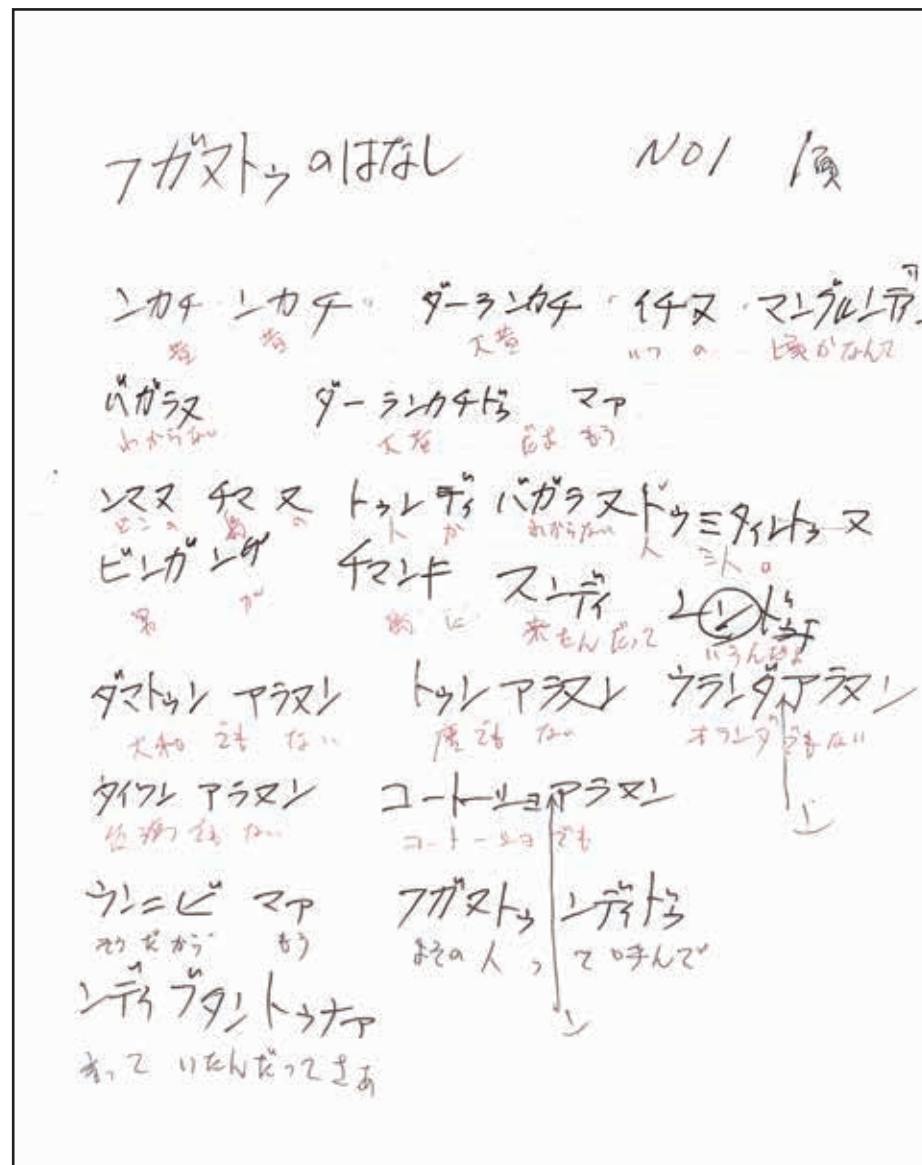 フガヌトゥのはなし NO1 1頁
ンカチ ンカチ ダーランカチ イチヌ マングルンディ
昔 昔 大昔 いつ の 頃かなんて
バガラヌ ダーランカチドゥ マア
わからない 大昔 だよ もう
ンマヌ チマヌ トゥンディ バガラヌ ドゥミタイントゥーヌ
どこの 島 の 人 か わからない 人 三人 の
ビンガ ンガ チマンキ スンディ
男 が 島 に 来たんだって いうんだよ
ダマトゥン アラヌン トゥン アラヌン ウランダアラヌン
大和 でも ない 唐でも ない オランダでもない
ン
タイワン アラヌン コートーショアラヌン
台湾 でも ない コートーショ でも
ウンニビ マア フガヌトゥ ンディドゥ
そうだから もう よその人 って 呼んで
ン
ンディ ブタントゥナア
言って いたんだってさぁ